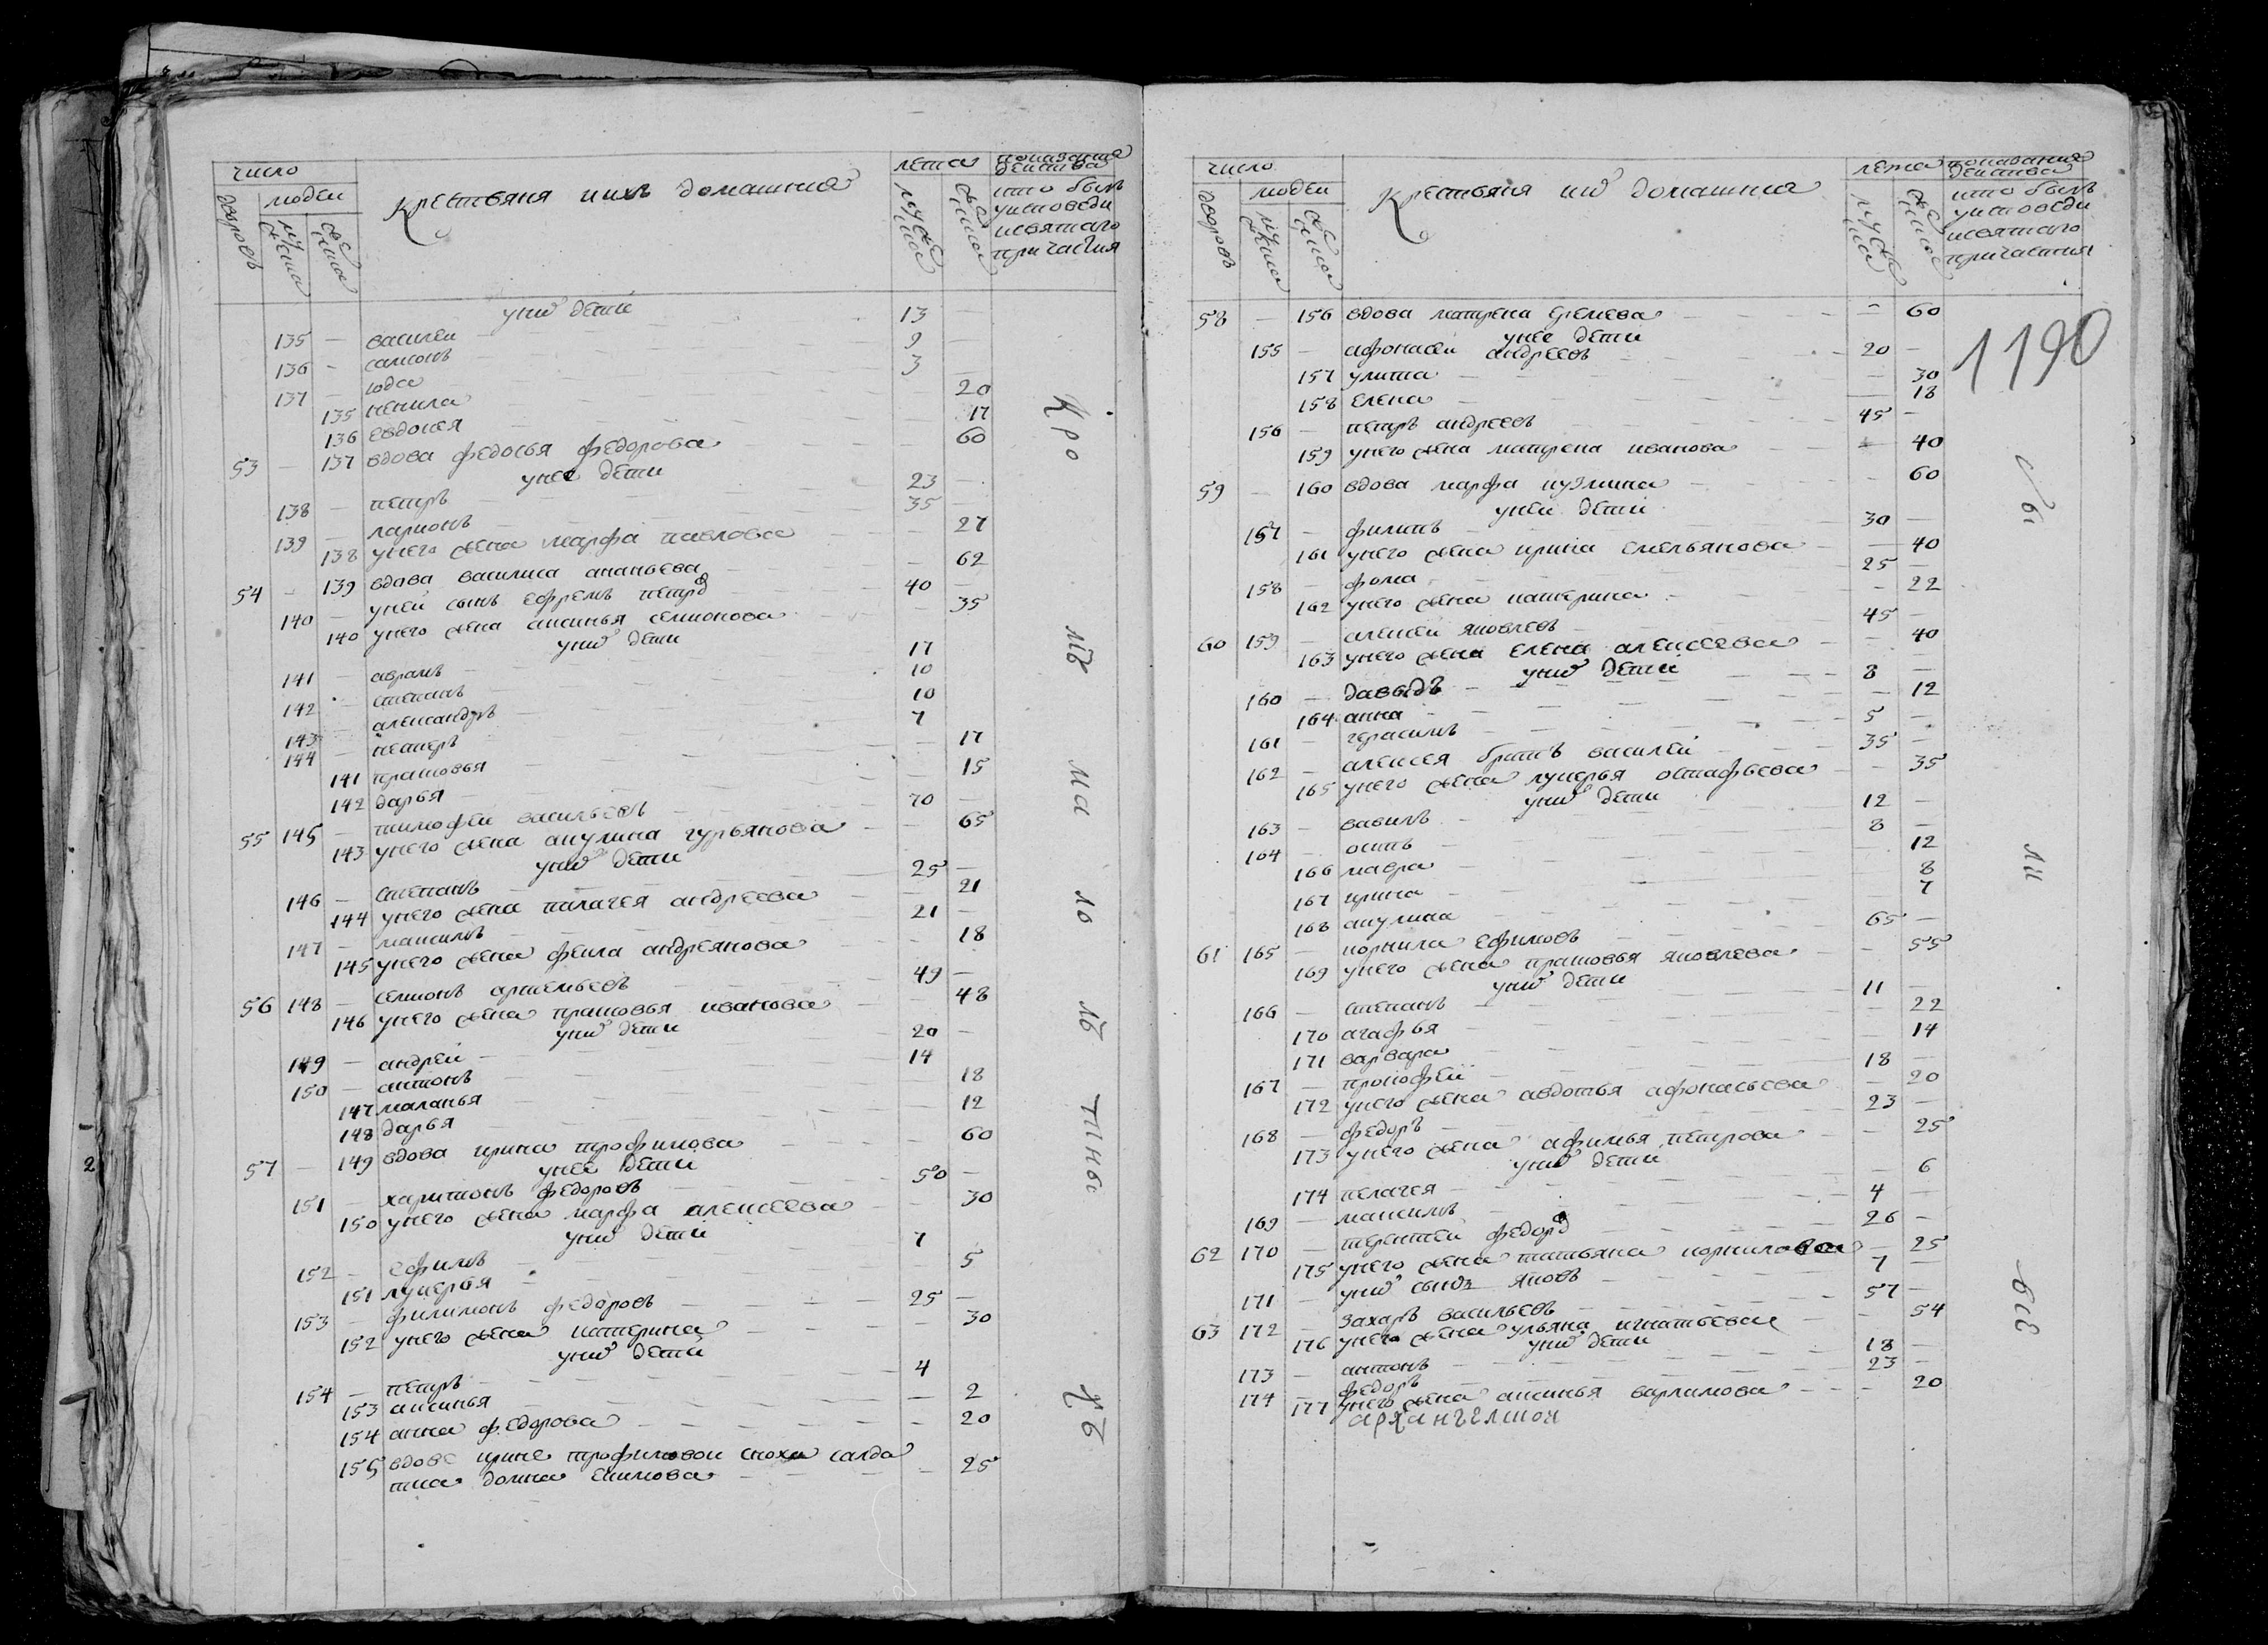 число
людей
дворовъ
мужеска
женска
Крестьяня иихъ домашния
лета
мужеска
женска
показания
действа
кто былъ
уисповеди
исвятаго
причастия
униⷯ дети
135 — василеи — 13
136 — самсонъ — 9
137 — юда — 3
135 ненила — 20
136 евдокея — 17
53 — 137 вдова федосья федорова — 60
унее дети
138 — петръ — 23
139 — ларионъ — 35
138 унего жена марфа павлова — 27
54 — 139 вдова василиса ананьева — 62
140 — уней сынъ ефремъ петроⷡ — 40
140 унего жена аксинья семионова — 35
униⷯ дети
141 — аврамъ — 17
142 — степанъ — 10
143 — александръ — 10
144 — 7
141 прасковья — 17
142 дарья — 15
55 145 — тимофеи васильевъ — 70
143 унего жена акулина гурьянова — 65
униⷯ дети
146 — степанъ — 25
144 унего жена пилагея андреева — 21
147 — максимъ — 21
145 унего жена фекла андреянова — 18
56 148 — семионъ артемьевъ — 49
146 унего жена прасковья иванова — 48
униⷯ дети
149 — андреи — 20
150 — антонъ — 14
147 маланья — 18
148 дарья — 12
57 — 149 вдова ирина трофимова — 60
унее дети
151 — харитонъ федоровъ — 50
150 унего жена марфа алексеева — 30
униⷯ дети
152 — ефимъ — 7
151 лукерья — 5
153 — филимонъ федоровъ — 25
152 унего жена катерина — 30
униⷯ дети
154 — петръ — 4
153 аксинья — 2
154 анна федорова — 20
155 вдове ирине трофимовои сноха салда
тка домна екимова — 25
Кро
мѣ
ма
ло
лѣ
тныⷯ
число
людей
дворовъ
мужеска
женска
Крестьяня ииⷯ домашния
лета
мужеска
женска
показания
действа
кто былъ
уисповеди
исвятаго
причастия
1190
58 — 156 вдова матрена — 60
унее дети
155 — афонасеи андреевъ — 20
157 улита — 30
158 елена — 18
156 — петръ андреевъ — 45
159 унего жена матрена иванова — 40
59 — 160 вдова марфа кузмина — 60
уней дети
157 — филипъ — 30
161 унего жена ирина емельянова — 40
158 — фома — 25
162 унего жена катерина — 22
60 159 — алексеи яковлевъ — 45
163 унего жена елена алексеева — 40
униⷯ дети
160 — давыдъ — 8
164 анна — 12
161 — герасимъ — 5
162 — алексея братъ василеи — 35
165 унего жена лукерья остафьева — 35
униⷯ дети
163 — вавилъ — 12
164 — осипъ — 8
166 мавра — 12
167 ирина — 8
168 акулина — 7
61 165 — корнила ефимовъ — 65
169 унего жена прасковья яковлева — 55
униⷯ дети
166 — степанъ — 11
170 агафья — 22
171 варвара — 14
167 — прокофеи — 18
172 унего жена авдотья афонасьева — 20
168 — федоръ — 23
173 унего жена афимья петрова — 25
униⷯ дети
174 пелагея — 6
169 — максимъ — 4
62 170 — терентеи федороⷡ — 26
175 унего жена татьяна корнилова — 25
171 — униⷯ сынъ яковъ — 7
63 172 — захаръ васильевъ — 57
176 унего жена ульяна игнатьева — 54
униⷯ дети
173 — антонъ — 18
174 — федоръ — 23
177 унего жена аксинья варламова — 20
архангелской
бы
ли
всѣ